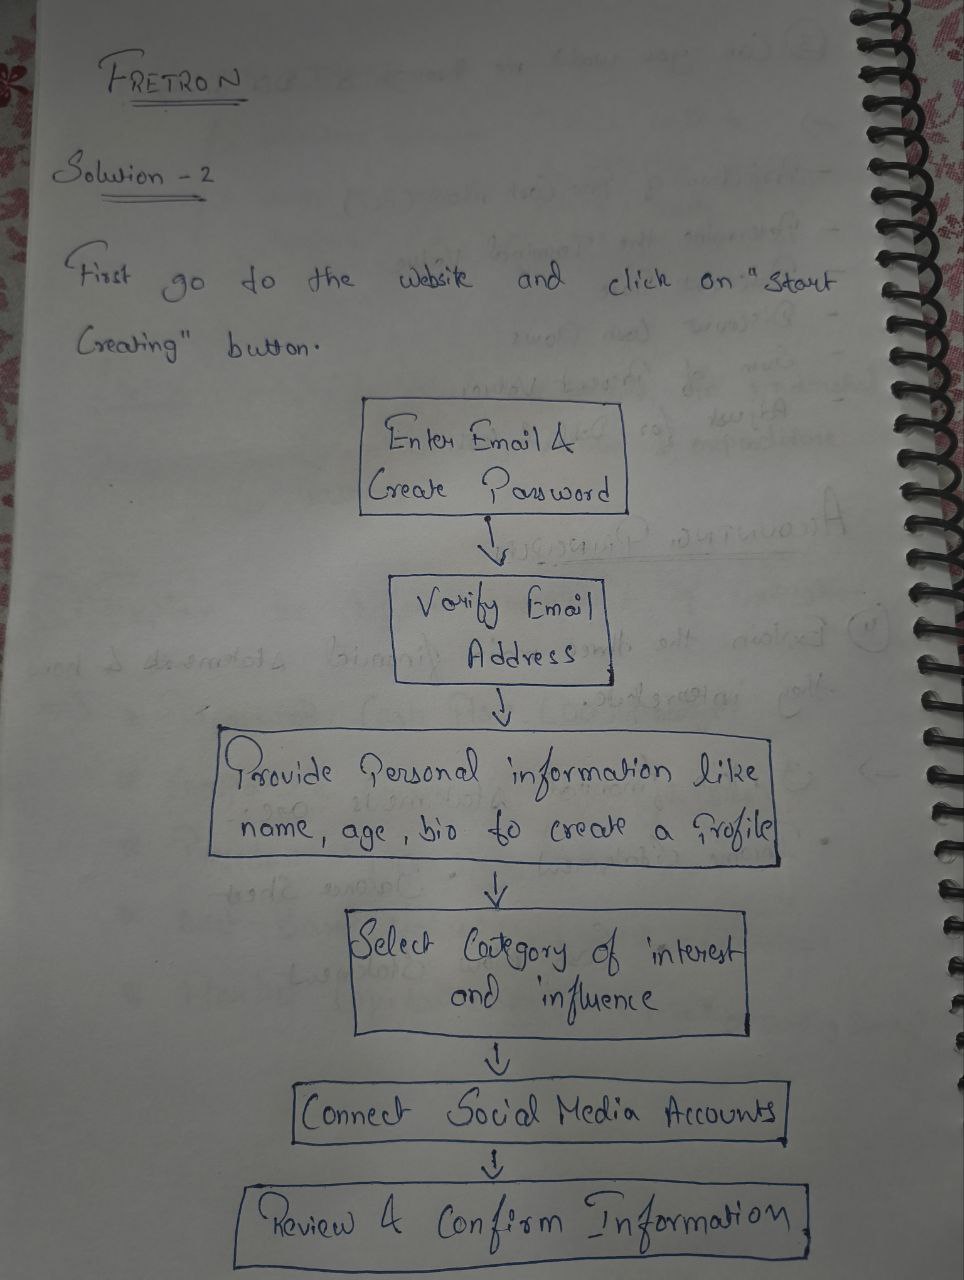 FRETRON
Solution - 2
First go to the website and click on "Start
Creating" button.
Enter Email &
Create Password
Verify Email
Address
Provide Personal information like
name, age, bio to create a Profile
Select Category of interest
and influence
Connect Social Media Accounts
Review & Confirm Information